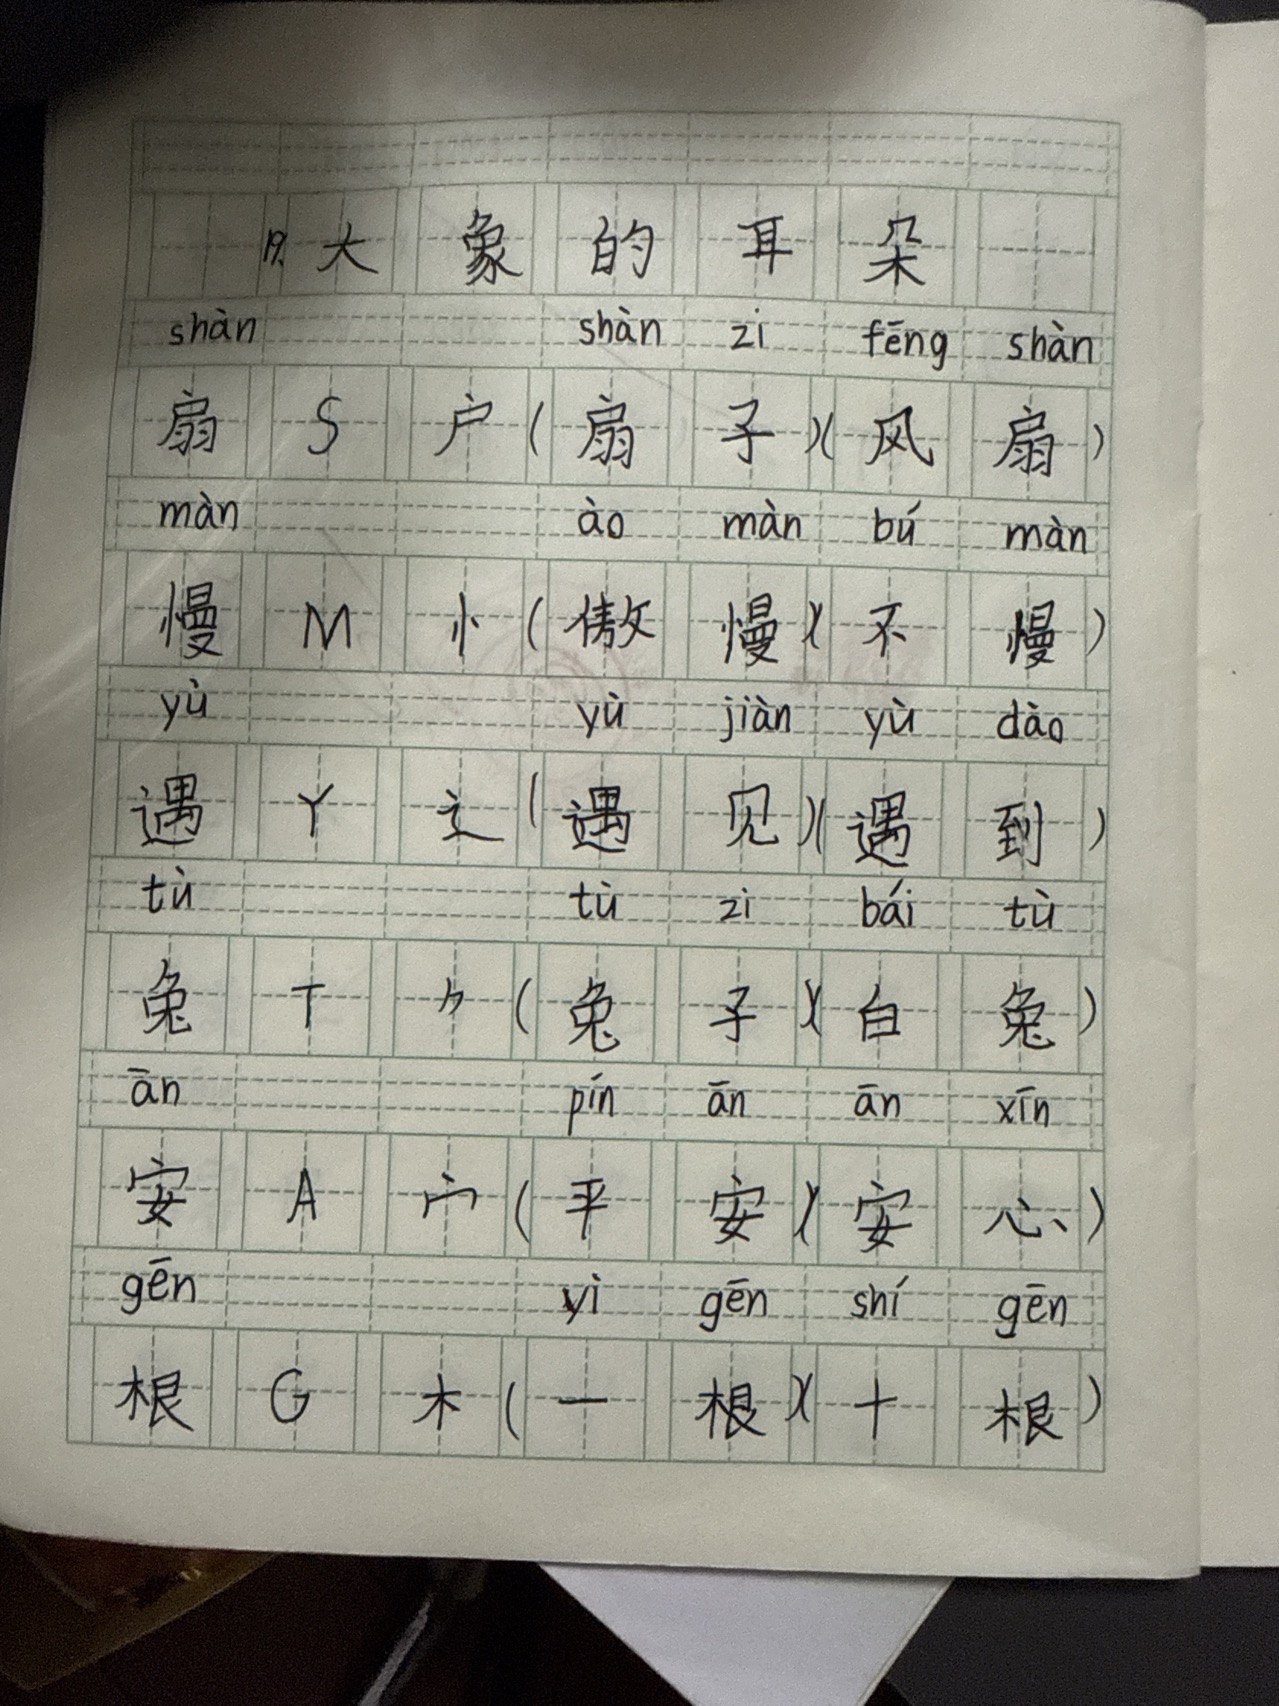 19.大象的耳朵
shàn shàn zi fēng shàn
扇 S 户(扇子)(风扇)
màn ào màn bú màn
慢 M 忄(傲慢)(不慢)
yù yù jiàn yù dào
遇 Y 辶(遇见)(遇到)
tù tù zi bái tù
兔 T ⺈(兔子)(白兔)
ān pín ān ān xīn
安 A 宀(平安)(安心)
gēn yì gēn shí gēn
根 G 木(一根)(十根)